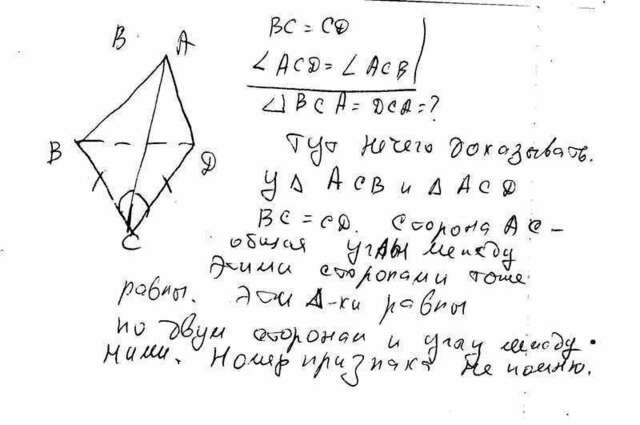 B A
B D
C
BC = CD
∠ACD = ∠ACB
∠BCA = DCA = ?
Тут нечего доказывать.
У Δ ACB и Δ ACD
BC = CD. Сторона AC –
общая углы между
этими сторонами тоже
равны. Эти Δ-ки равны
по двум сторонам и углу между
ними. Номер признака не помню.